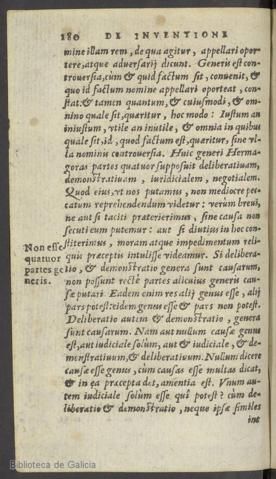 180 DE INVENTIONE
mine illam rem, de qua agitur, appellari opor-
tere, atque aduersarij dicunt. Generis est con-
trouersia, cùm & quid factum sit, conuenit, &
quo id factum nomine appellari oporteat, con-
stat: & tamen quantum, & cuiusmodi, & om-
nino quale sit, quæritur, hoc modo: Iustum an
iniustum, vtile an inutile, & omnia in quibus
quale sit, id, quod factum est, quæritur, sine vl-
la nominis controuersia. Huic generi Herma-
goras partes quatuor supposuit deliberatiuam,
demonstratiuam, iuridicialem, negotialem.
Quod eius, vt nos putamus, non mediocre pec-
catum reprehendendum videtur: verùm breui,
ne aut si taciti præterierimus, sine causa non
secuti eum putemur: aut si diutius in hoc con-
Non esse
quatuor
partes ge
neris.
stiterimus, moram atque impedimentum reli-
quis præceptis intulisse videamur. Si delibera-
tio, & demonstratio genera sunt causarum,
non possunt rectè partes alicuius generis cau-
sæ putari. Eadem enim res alij genus esse, alij
pars potest: eidem genus esse & pars non potest.
Deliberatio autem & demonstratio, genera
sunt causarum. Nam aut nullum causæ genus
est, aut iudiciale solùm, aut & iudiciale, & de-
monstratiuum, & deliberatiuum. Nullum dicere
causæ esse genus, cùm causas esse multas dicat,
& in ea præcepta det, amentia est. Vnum au-
tem iudiciale solùm esse qui potest? cùm de-
liberatio & demonstratio, neque ipsæ similes
int
Biblioteca de Galicia